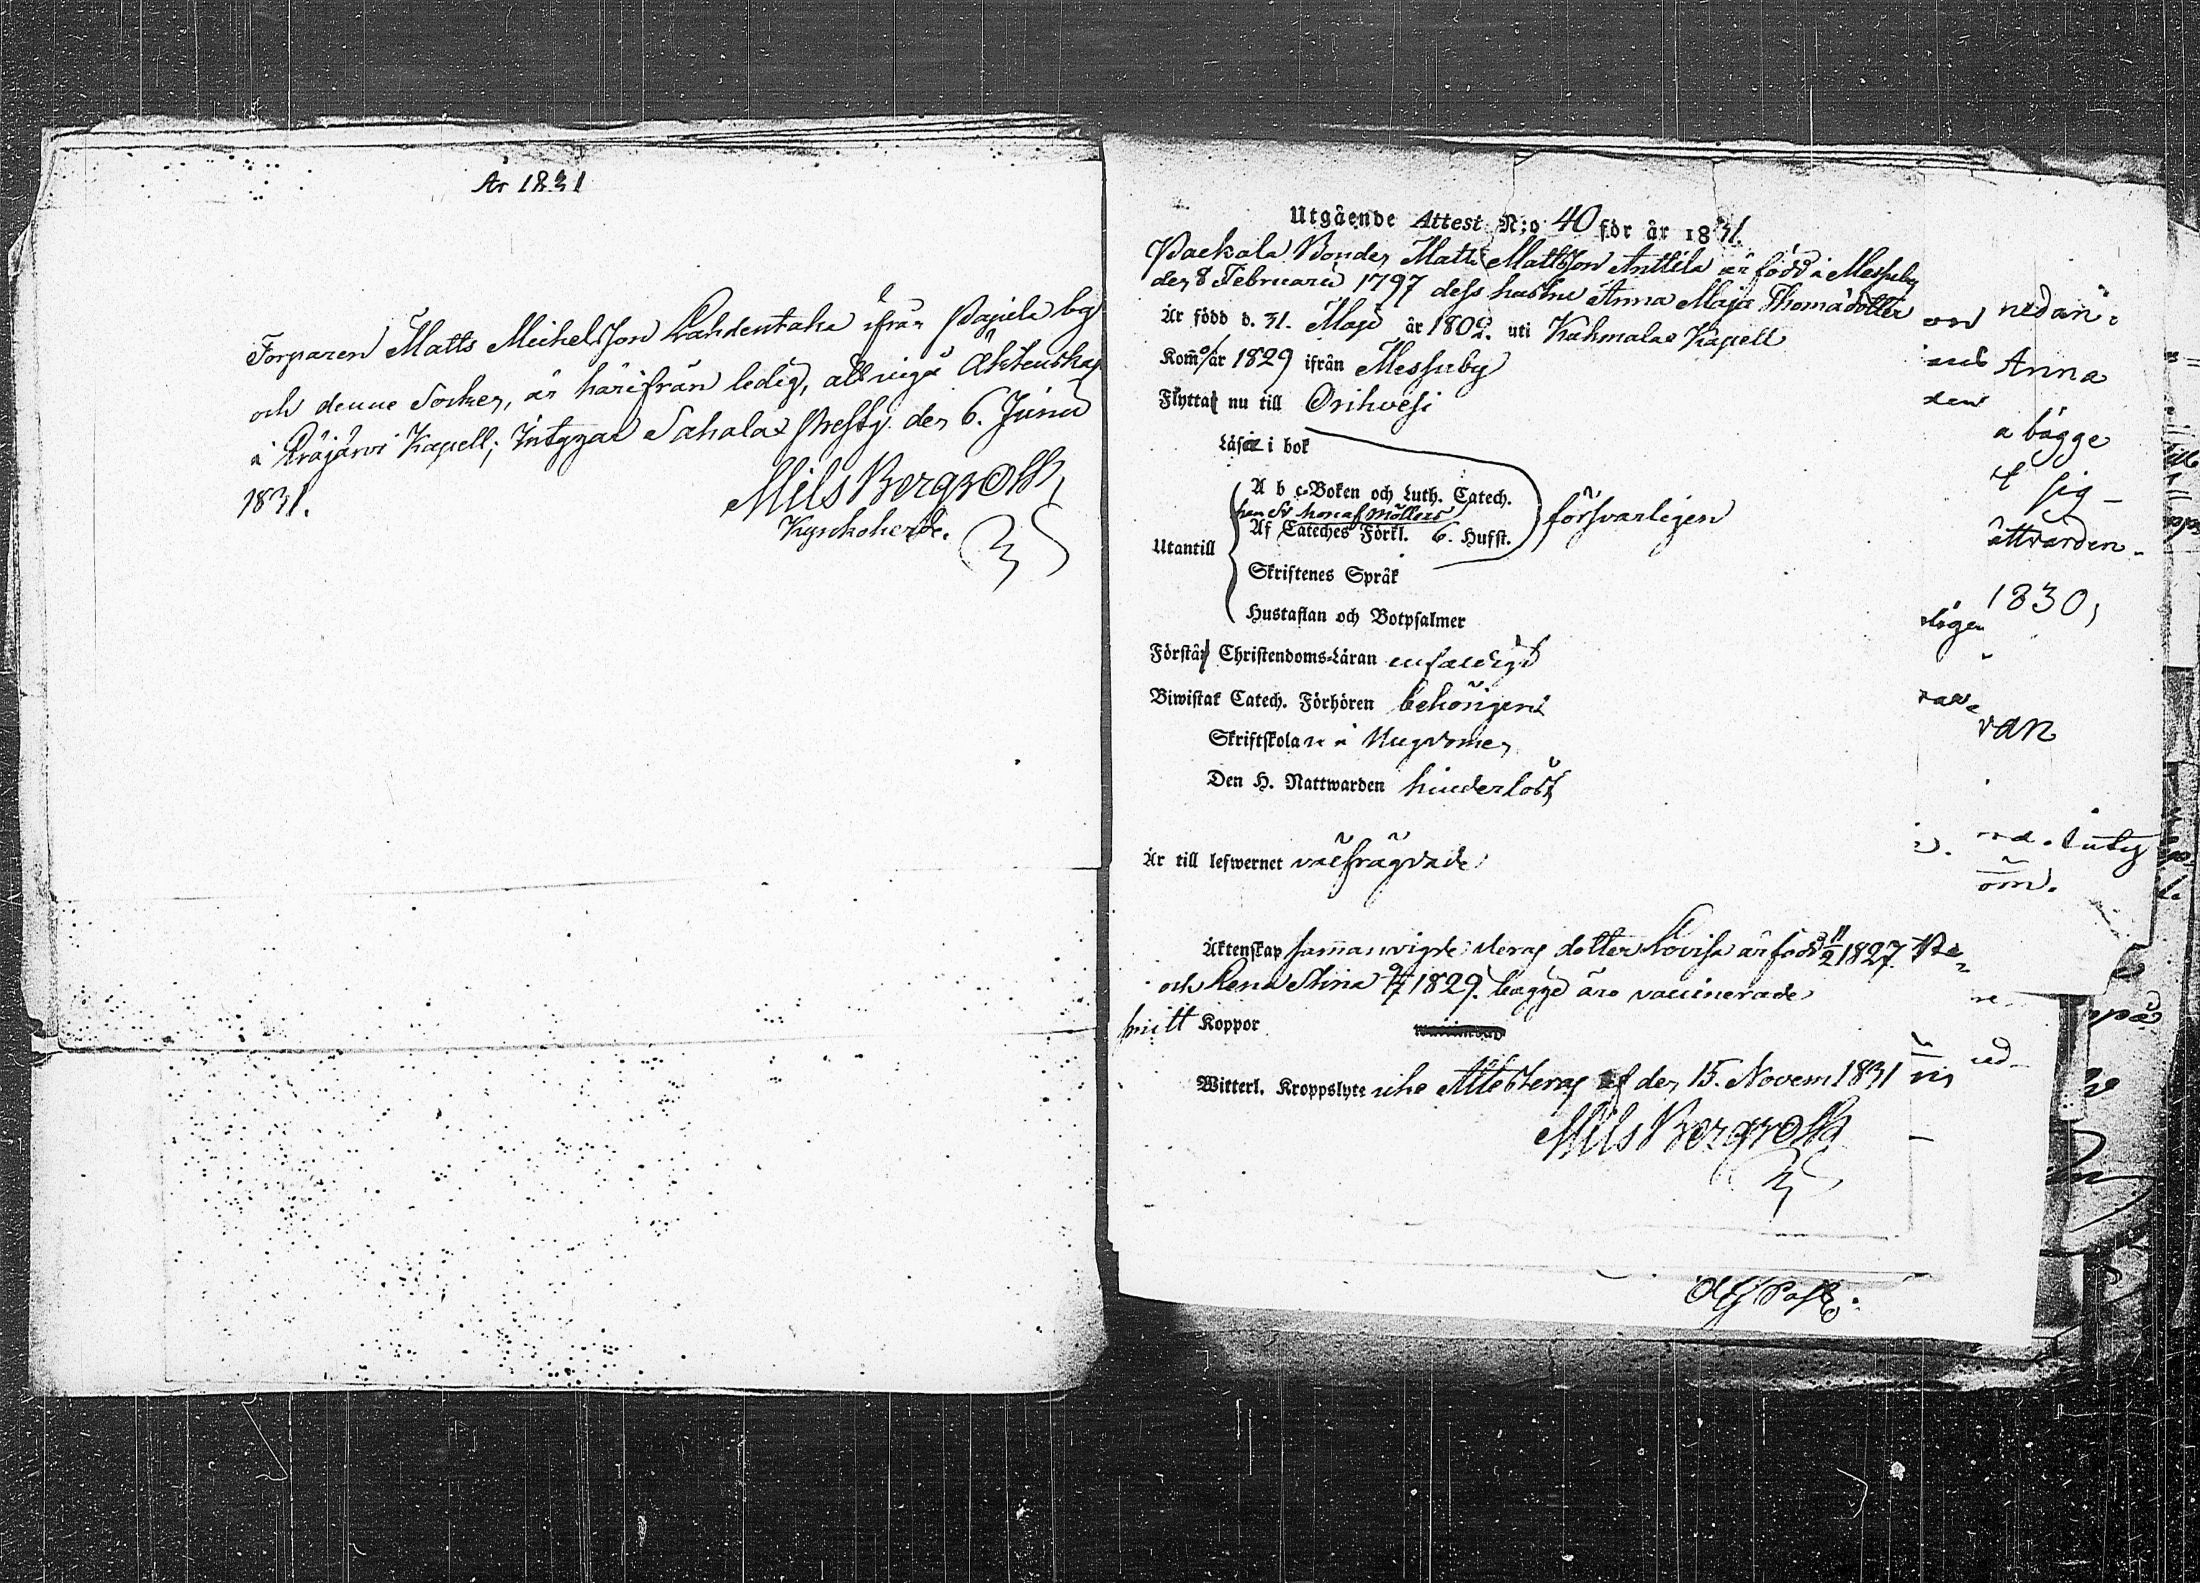 År 1831
Torparen Matts Michelsson Lahdentaka ifrån Pajula by
och denne Socken, är härifrån ledig, att ingå Äktenskap
i Eräjärvi Kapell; Intygar Sahalax Prestg. den 6. Junii
1831.
Nils Bergroth,
Kyrkoherde.
Utgående Attest N:o 40 för år 1831.
Paekala Bonden Matts Mattsson Anttila är född i Messuby
den 8 Februarii 1797 dess hustru Anna Maja Thomadotter
Är född d. 31. Maji år 1802. uti Kuhmalax Kapell
Kom̃o/år 1829 ifrån Messuby
Flytta nu till Orihvesi
Läsa i bok
A b c-Boken och Luth. Catech.
Af Cateches Förkl. 6. Hufst.
försvarligen
Utantill
Skriftenes Språk
Hustaflan och Botpsalmer
Förstå Christendoms-Läran enfaldigt
Biwistat Catech. Förhören behörigen
Skriftskolan i Ungdomen
Den H. Nattwarden hinderlöst
Är till lefwernet välfrägdade
Äktenskap sammanvigde: deras dotter Lovisa är född 11/2 1827.
och Lena Stina 1829. bägge äro vaccinerade
Koppor
Witterl. Kroppslyte icke Attesteras af den 15. Novem 1831
Nils Bergroth
nedan
Anna
den
a bägge
sig
attvarden
1830,
van